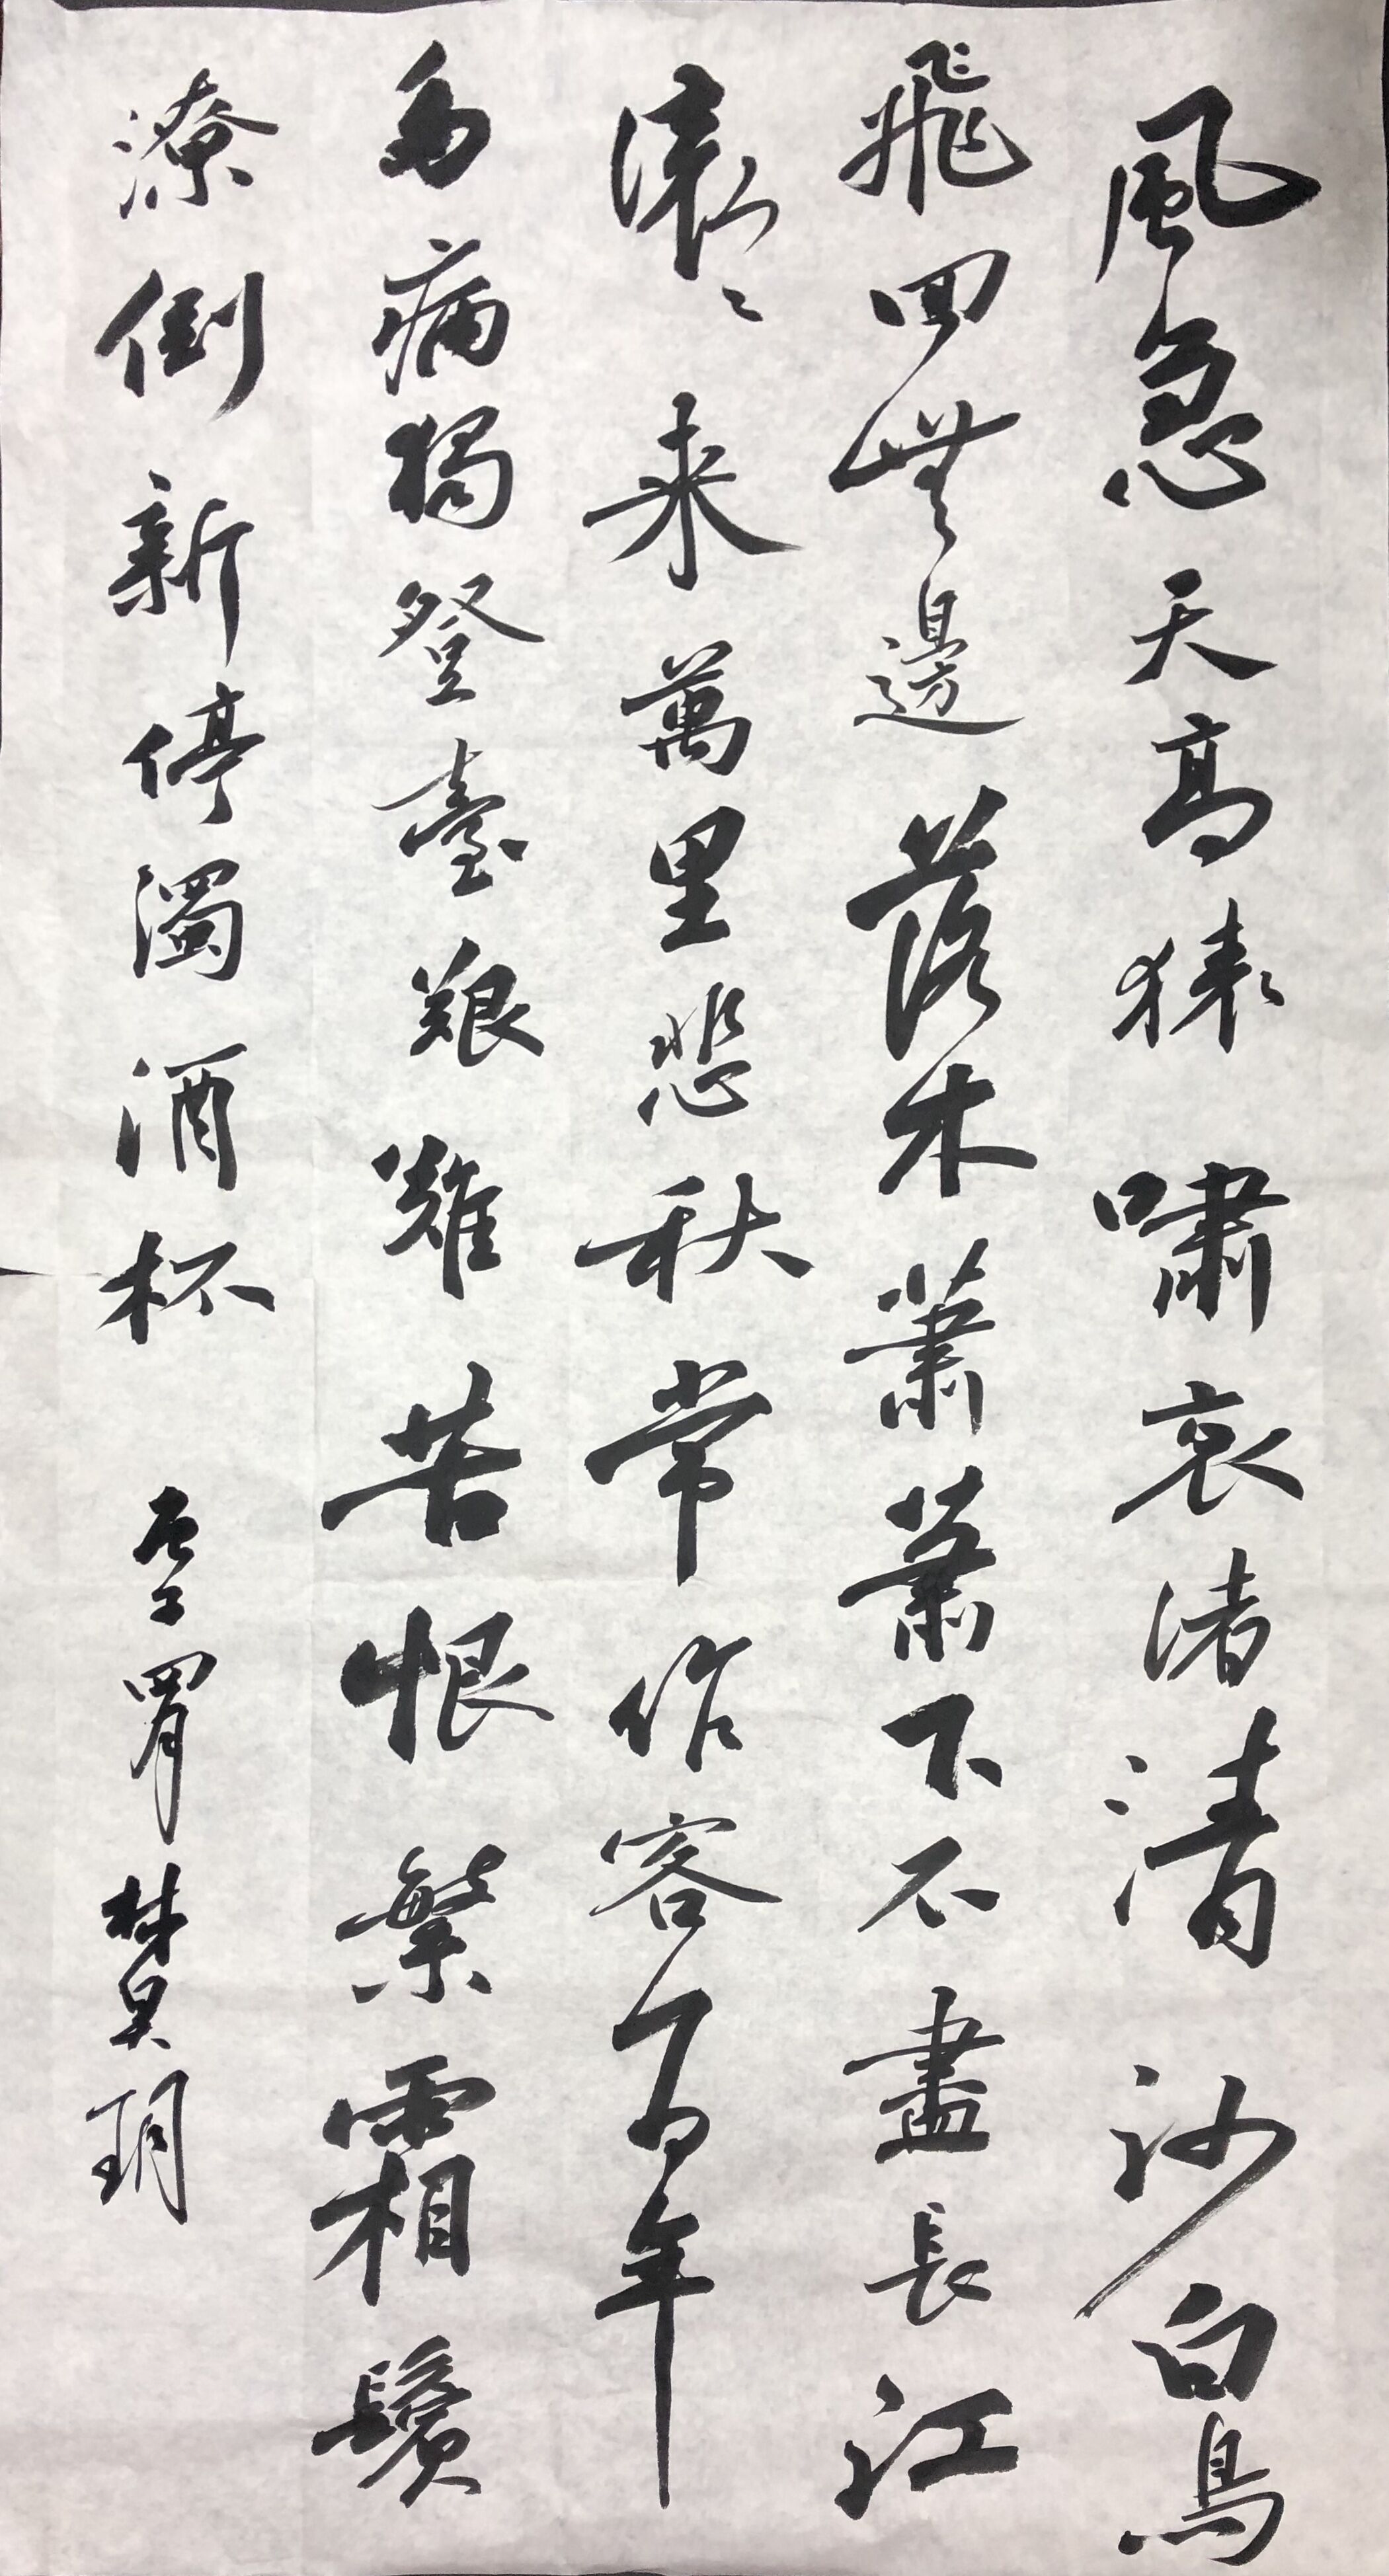 風急天高猿嘯哀渚清沙白鳥
飛回無邊落木蕭蕭下不盡長江
滾滾来萬里悲秋常作客百年
多病獨登臺艱難苦恨繁霜鬢
潦倒新停濁酒杯 玥